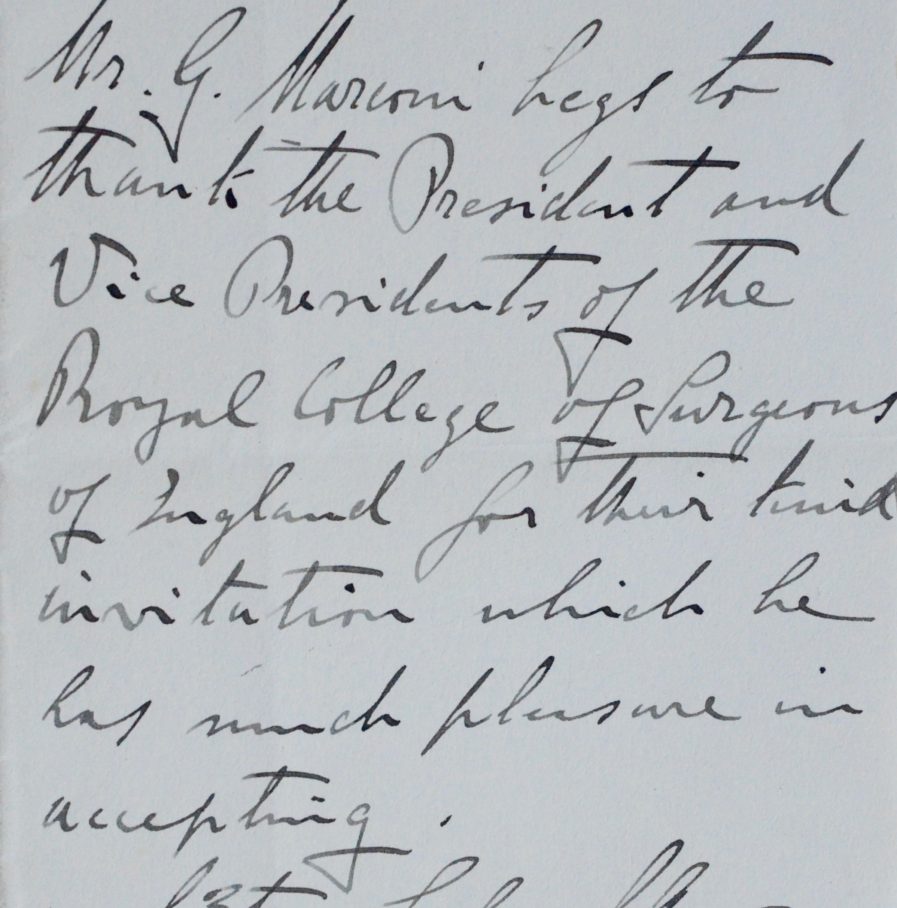 Mr. G. Marconi begs to
thank the President and
Vice Presidents of the
Royal College of Surgeons
of England for their kind
invitation which he
has much pleasure in
accepting.